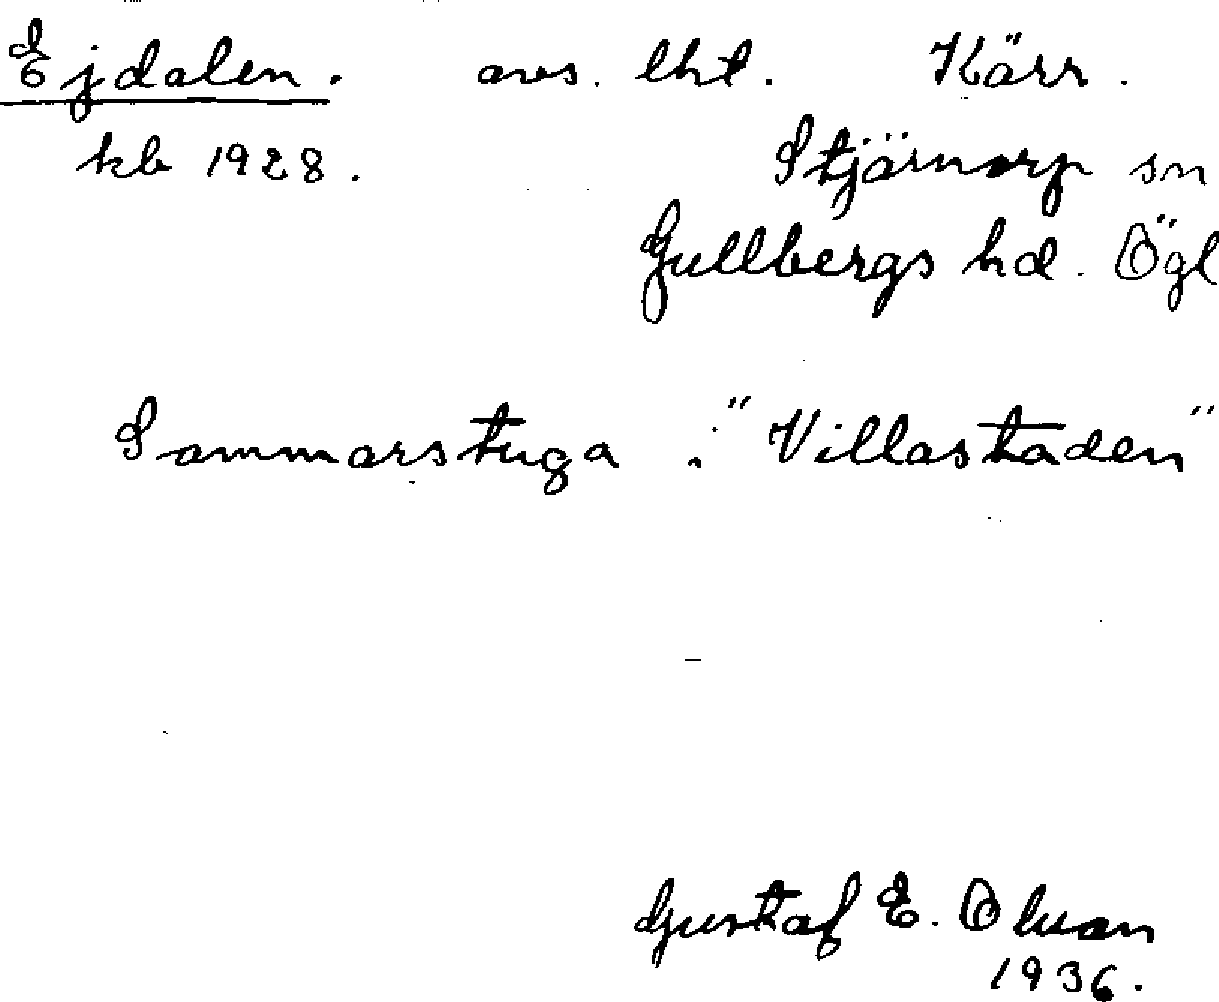 Ejdalen. avs. lht. Kärr.
kb 1928. Stjärnorp sn
Gullbergs hd. Ögl
Sommarstuga i "Villastaden"
Gustaf E. Olsson
1936.